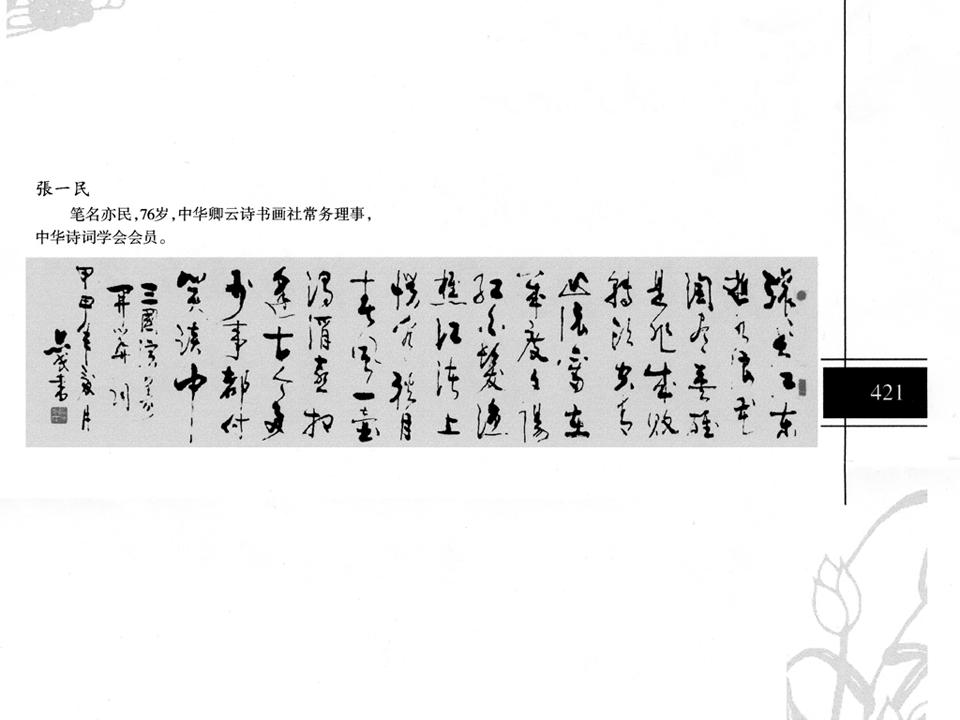 張一民
笔名亦民，76岁，中华卿云诗书画社常务理事，
中华诗词学会会员。
滚々长江东
逝水浪花
淘尽英雄
是非成败
转头空青
山依旧在
几度夕陽
红白髮渔
樵江渚上
惯看秋月
春风一壶
濁酒喜相
逢古今多
少事都付
笑谈中
三國演義
甲申年夏月
亦民书
421